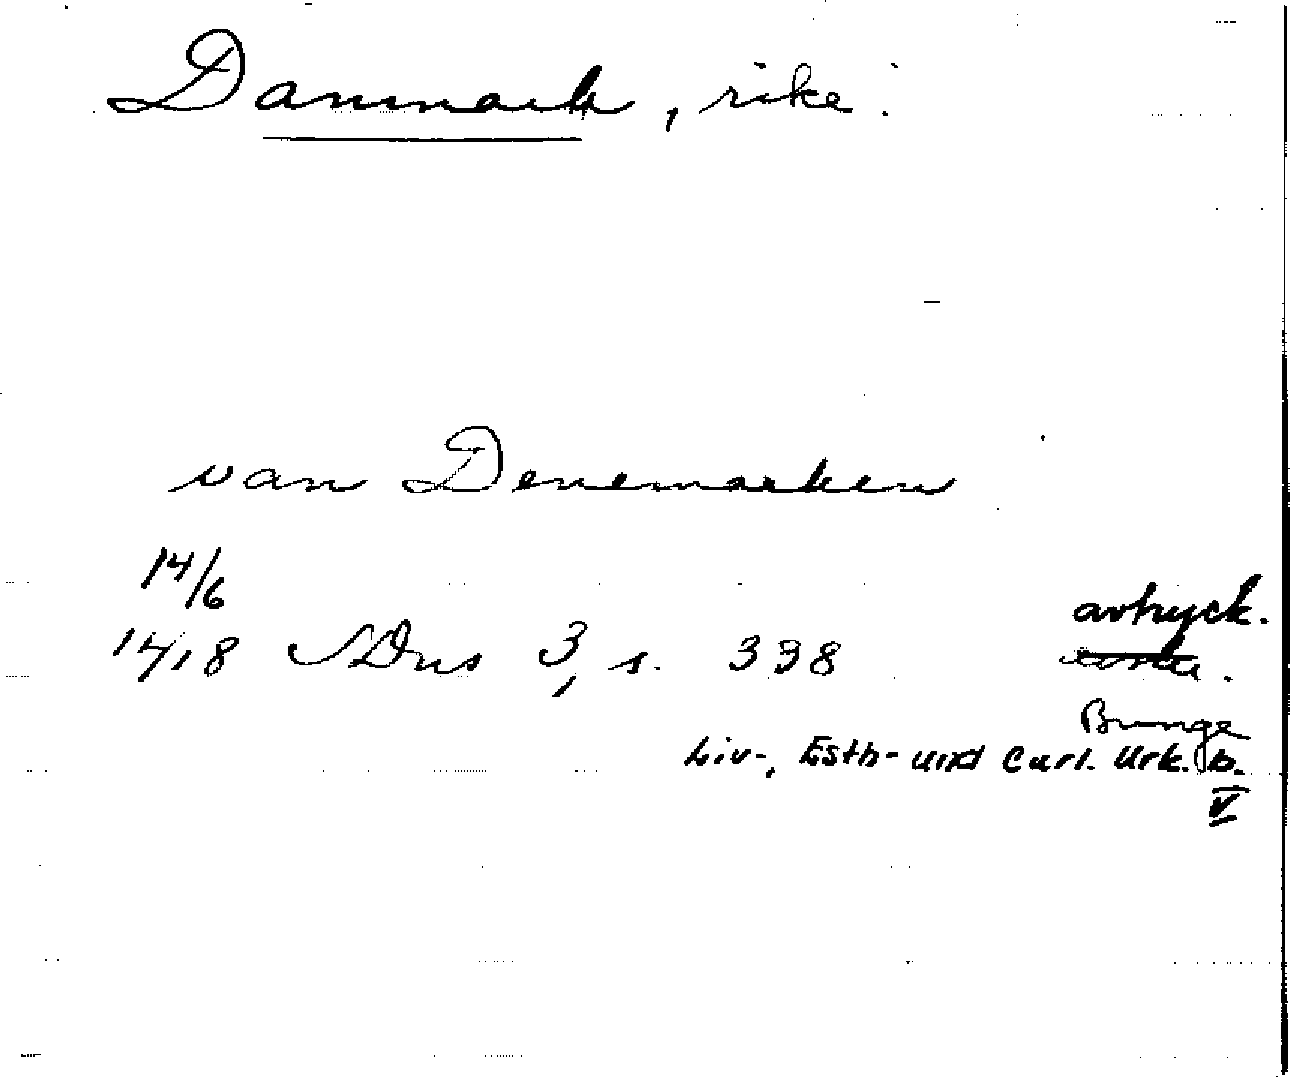 Danmark, rike.
van Denemarken
14/6
1418 SDns 3, s. 338
avtryck.
Bunge
Liv-, Esth- und Curl. Urk. b.
V